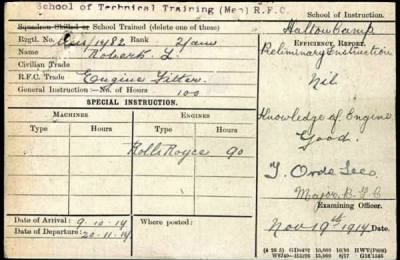 School of Technical Training (Men) R.F.C.
School of Instruction.
Squadron Skilled or School Trained (delete one of these)
Halton Camp
Regtl. No. 1982 Rank 2/am
Efficiency Report.
Name Robert L.
Preliminary Instruction
Civilian Trade
Nil
R.F.C. Trade Engine Fitter.
General Instruction:—No. of Hours 100
SPECIAL INSTRUCTION.
Knowledge of Engine
Good.
MACHINES
ENGINES
Type Hours Type Hours
Rolls Royce 90
T. Orde Lees
Major R.F.C.
Examining Officer.
Date of Arrival: 9-10-17
Where posted:
Nov 19th 1917 Date.
Date of Departure: 20-11-17